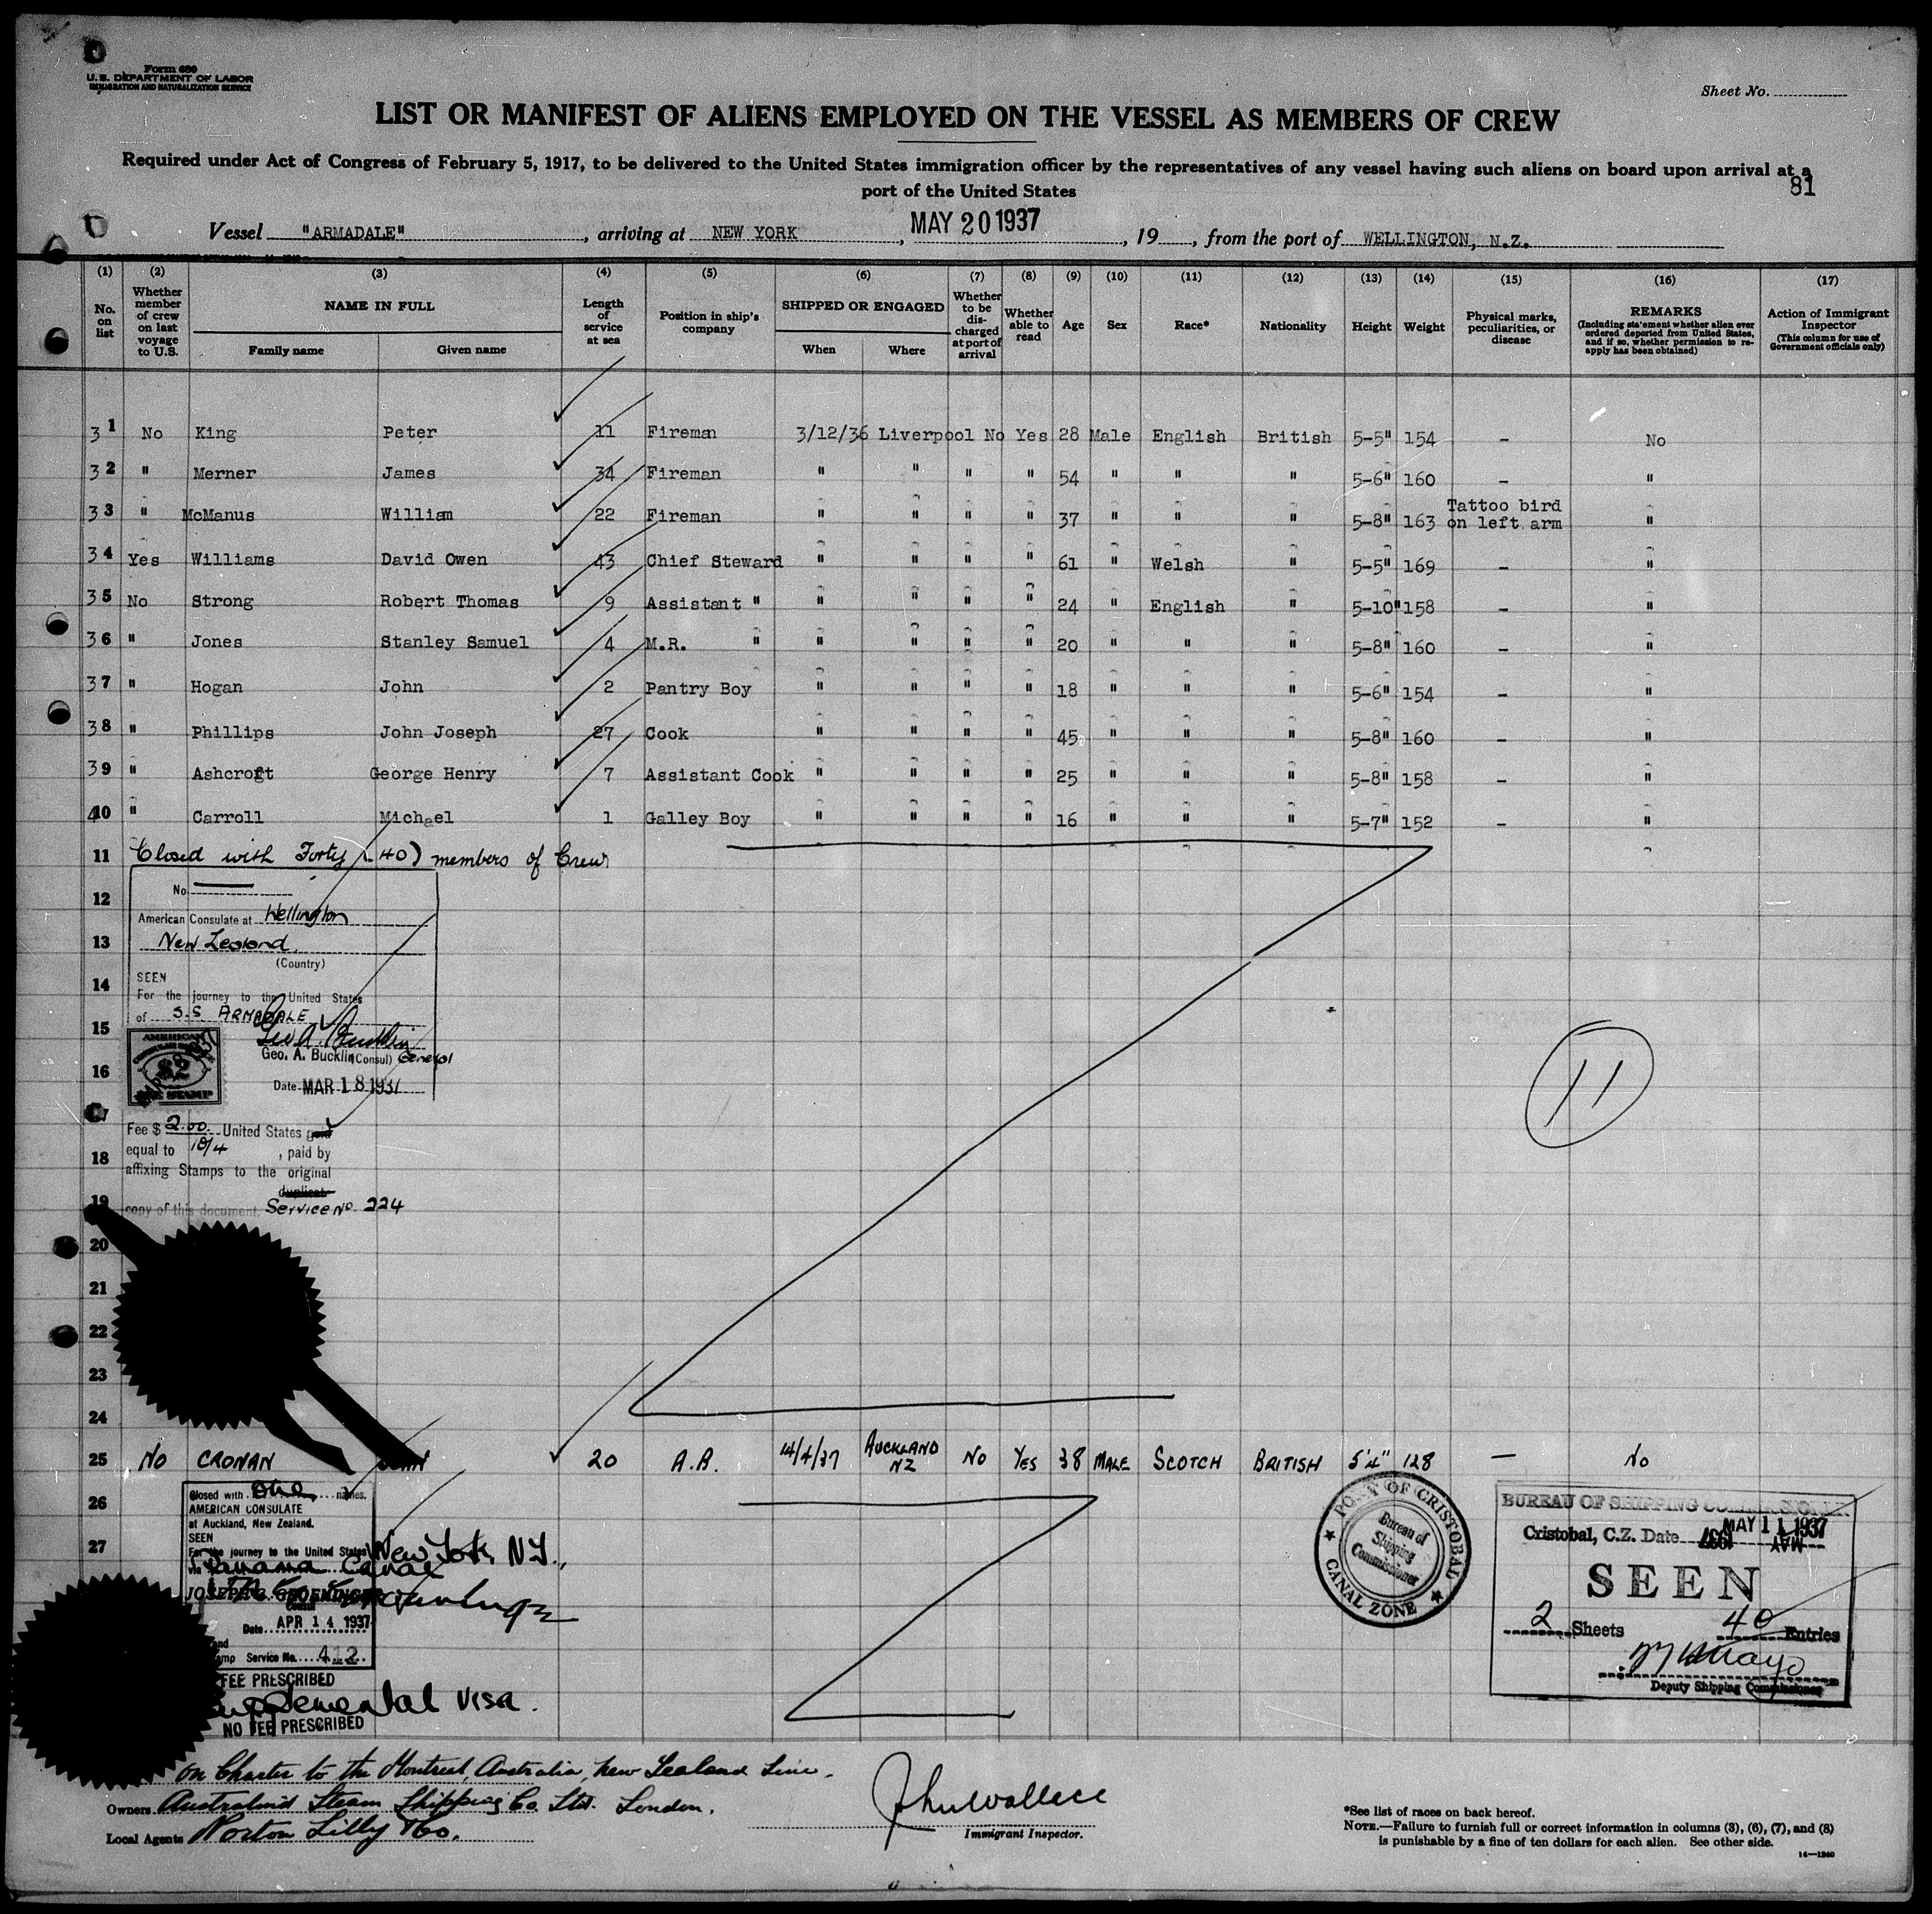 Form 689
U. S. DEPARTMENT OF LABOR
IMMIGRATION AND NATURALIZATION SERVICE
Sheet No.
LIST OR MANIFEST OF ALIENS EMPLOYED ON THE VESSEL AS MEMBERS OF CREW
Required under Act of Congress of February 5, 1917, to be delivered to the United States immigration officer by the representatives of any vessel having such aliens on board upon arrival at a
port of the United States
81
Vessel "ARMADALE", arriving at NEW YORK, MAY 20 1937, 19, from the port of WELLINGTON, N.Z.
(1) (2) (3) (4) (5) (6) (7) (8) (9) (10) (11) (12) (13) (14) (15) (16) (17)
No. on list
Whether member of crew on last voyage to U.S.
NAME IN FULL
Family name Given name
Length of service at sea
Position in ship's company
SHIPPED OR ENGAGED
When Where
Whether to be discharged at port of arrival
Whether able to read
Age
Sex
Race*
Nationality
Height
Weight
Physical marks, peculiarities, or disease
REMARKS
(Including statement whether alien ever ordered deported from United States, and if so, whether permission to reapply has been obtained)
Action of Immigrant Inspector
(This column for use of Government officials only)
31 No King Peter 11 Fireman 3/12/36 Liverpool No Yes 28 Male English British 5-5" 154 – No
32 " Merner James 34 Fireman " " " " 54 " " " 5-6" 160 – "
33 " McManus William 22 Fireman " " " " 37 " " " 5-8" 163 Tattoo bird on left arm "
34 Yes Williams David Owen 43 Chief Steward " " " " 61 " Welsh " 5-5" 169 – "
35 No Strong Robert Thomas 9 Assistant " " " " " 24 " English " 5-10" 158 – "
36 " Jones Stanley Samuel 4 M.R. " " " " " 20 " " " 5-8" 160 – "
37 " Hogan John 2 Pantry Boy " " " " 18 " " " 5-6" 154 – "
38 " Phillips John Joseph 27 Cook " " " " 45 " " " 5-8" 160 – "
39 " Ashcroft George Henry 7 Assistant Cook " " " " 25 " " " 5-8" 158 – "
40 " Carroll Michael 1 Galley Boy " " " " 16 " " " 5-7" 152 – "
11 Closed with Forty (40) members of Crew
12
No.
American Consulate at Wellington
13
New Zealand
(Country)
14
SEEN
For the journey to the United States
of S.S ARMADALE
15
Geo. A. Bucklin
Geo. A. Bucklin (Consul) General
16
Date MAR 18 1937
AMERICAN
$2
FEE STAMP
11
Fee $ 2.00 United States gold
equal to 10/4, paid by
18
affixing Stamps to the original
duplicate
19
copy of this document. Service No. 224
20
21
22
23
24
25 No CRONAN 20 A.B. 14/4/37 AUCKLAND NZ No YES 38 MALE SCOTCH BRITISH 5'4" 128 — No
26
Closed with one names.
AMERICAN CONSULATE
at Auckland, New Zealand.
SEEN
27
For the journey to the United States New York, N.Y.,
via Panama Canal
JOSEPH C. GROENINGER
Consul
Date APR 14 1937
Service No. 412
FEE PRESCRIBED
Supplemental Visa.
NO FEE PRESCRIBED
PORT OF CRISTOBAL
CANAL ZONE
Bureau of
Shipping
Commissioner
BUREAU OF SHIPPING COMMISSIONER
Cristobal, C.Z. Date MAY 11 1937
SEEN
2 Sheets 40 Entries
Deputy Shipping Commissioner
On Charter to the Montreal, Australia, New Zealand Line.
Owners Australind Steam Shipping Co. Ltd. London.
Local Agents Norton Lilly & Co.
John Wallace
Immigrant Inspector.
*See list of races on back hereof.
NOTE.—Failure to furnish full or correct information in columns (3), (6), (7), and (8)
is punishable by a fine of ten dollars for each alien. See other side.
14—1240